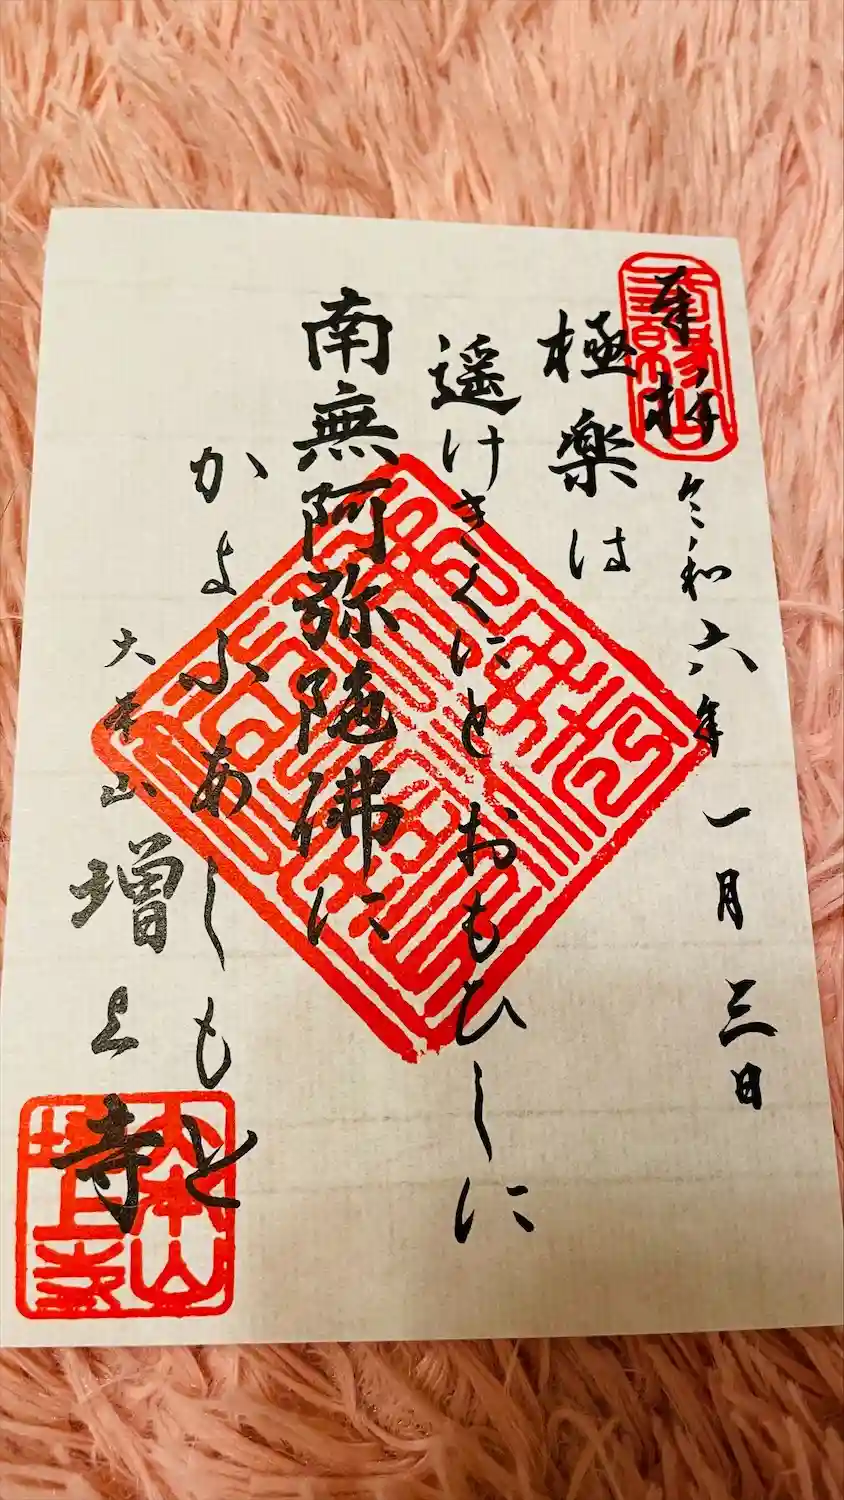 奉拝
令和六年一月三日
極楽は
遥けきくにとおもひしに
南無阿弥陀佛に
かよふあしもと
大本山増上寺
大本山
増上寺